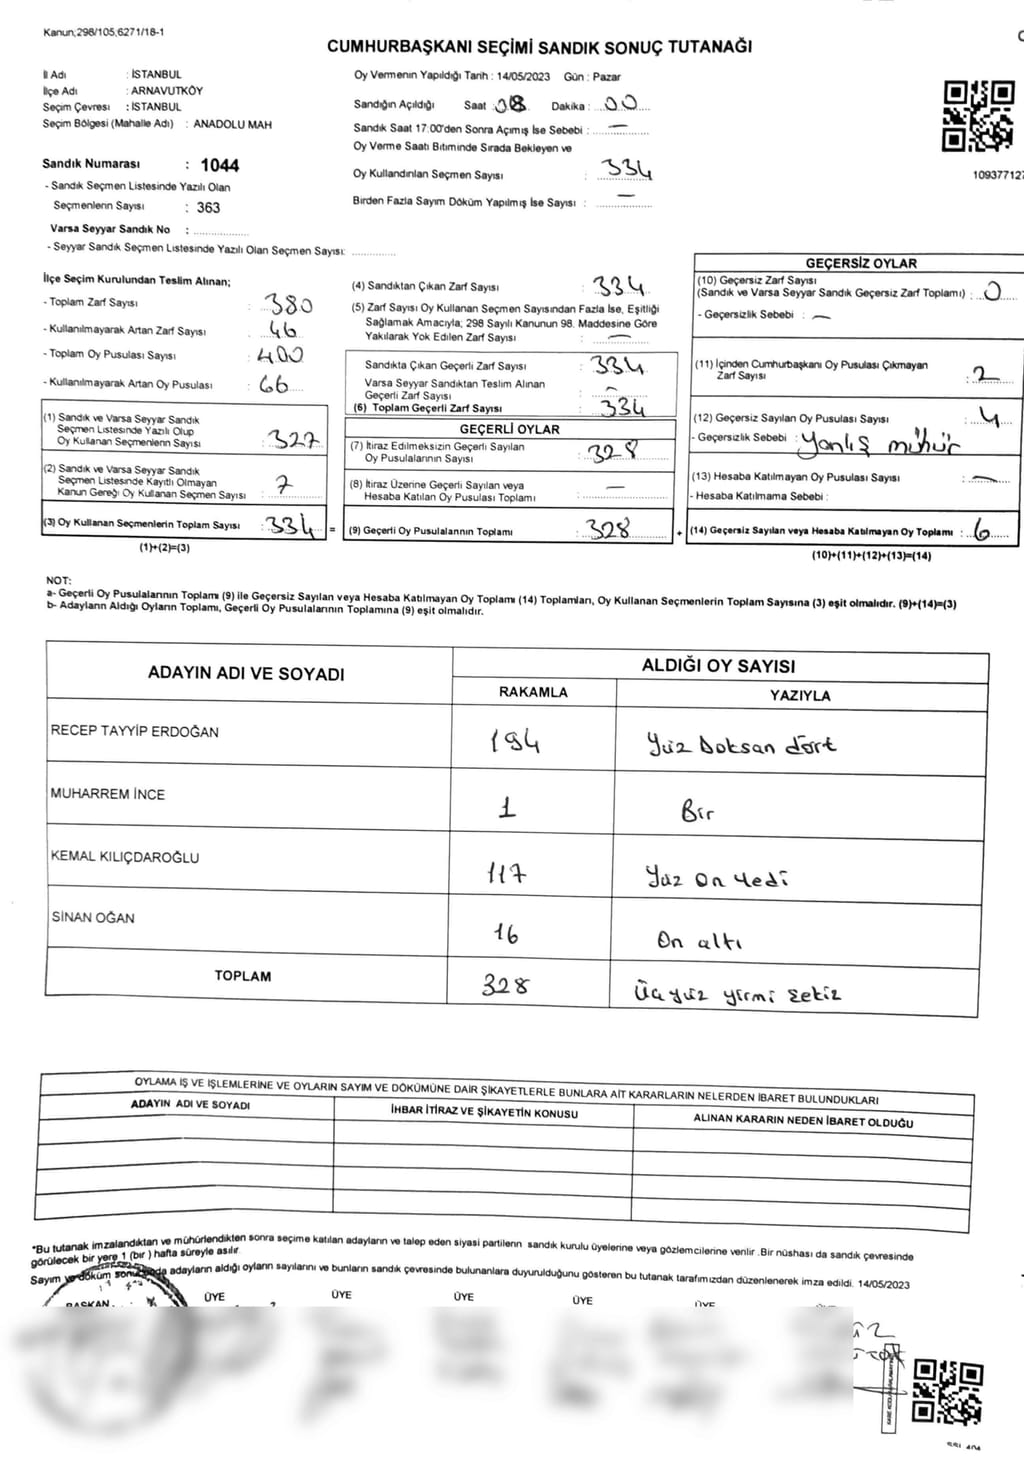 Kanun;298/105,6271/18-1
CUMHURBAŞKANI SEÇİMİ SANDIK SONUÇ TUTANAĞI
İl Adı : İSTANBUL
İlçe Adı : ARNAVUTKÖY
Seçim Çevresi : İSTANBUL
Seçim Bölgesi (Mahalle Adı) : ANADOLU MAH
Sandık Numarası : 1044
- Sandık Seçmen Listesinde Yazılı Olan
Seçmenlerin Sayısı : 363
Varsa Seyyar Sandık No : ..................
- Seyyar Sandık Seçmen Listesinde Yazılı Olan Seçmen Sayısı: ..............
Oy Vermenin Yapıldığı Tarih : 14/05/2023 Gün : Pazar
Sandığın Açıldığı Saat : 08 Dakika : 00
Sandık Saat 17:00'den Sonra Açımış İse Sebebi : —
Oy Verme Saati Bitiminde Sırada Bekleyen ve
Oy Kullandırılan Seçmen Sayısı : 334
Birden Fazla Sayım Döküm Yapılmış İse Sayısı : —
109377127
İlçe Seçim Kurulundan Teslim Alınan;
- Toplam Zarf Sayısı : 380
- Kullanılmayarak Artan Zarf Sayısı : 46
- Toplam Oy Pusulası Sayısı : 400
- Kullanılmayarak Artan Oy Pusulası : 66
(1) Sandık ve Varsa Seyyar Sandık
Seçmen Listesinde Yazılı Olup
Oy Kullanan Seçmenlerin Sayısı : 327
(2) Sandık ve Varsa Seyyar Sandık
Seçmen Listesinde Kayıtlı Olmayan
Kanun Gereği Oy Kullanan Seçmen Sayısı : 7
(3) Oy Kullanan Seçmenlerin Toplam Sayısı : 334 =
(1)+(2)=(3)
(4) Sandıktan Çıkan Zarf Sayısı : 334
(5) Zarf Sayısı Oy Kullanan Seçmen Sayısından Fazla İse, Eşitliği
Sağlamak Amacıyla; 298 Sayılı Kanunun 98. Maddesine Göre
Yakılarak Yok Edilen Zarf Sayısı : —
Sandıkta Çıkan Geçerli Zarf Sayısı : 334
Varsa Seyyar Sandıktan Teslim Alınan
Geçerli Zarf Sayısı : —
(6) Toplam Geçerli Zarf Sayısı : 334
GEÇERLİ OYLAR
(7) İtiraz Edilmeksizin Geçerli Sayılan
Oy Pusulalarının Sayısı : 328
(8) İtiraz Üzerine Geçerli Sayılan veya
Hesaba Katılan Oy Pusulası Toplamı : —
(9) Geçerli Oy Pusulalarının Toplamı : 328 +
GEÇERSİZ OYLAR
(10) Geçersiz Zarf Sayısı
(Sandık ve Varsa Seyyar Sandık Geçersiz Zarf Toplamı) : 0
- Geçersizlik Sebebi : —
(11) İçinden Cumhurbaşkanı Oy Pusulası Çıkmayan
Zarf Sayısı : 2
(12) Geçersiz Sayılan Oy Pusulası Sayısı : 4
- Geçersizlik Sebebi : Yanlış mühür
(13) Hesaba Katılmayan Oy Pusulası Sayısı : —
- Hesaba Katılmama Sebebi :
(14) Geçersiz Sayılan veya Hesaba Katılmayan Oy Toplamı : 6
(10)+(11)+(12)+(13)=(14)
NOT:
a- Geçerli Oy Pusulalarının Toplamı (9) ile Geçersiz Sayılan veya Hesaba Katılmayan Oy Toplamı (14) Toplamları, Oy Kullanan Seçmenlerin Toplam Sayısına (3) eşit olmalıdır. (9)+(14)=(3)
b- Adayların Aldığı Oyların Toplamı, Geçerli Oy Pusulalarının Toplamına (9) eşit olmalıdır.
ADAYIN ADI VE SOYADI ALDIĞI OY SAYISI
RAKAMLA YAZIYLA
RECEP TAYYİP ERDOĞAN 194 Yüz Doksan dört
MUHARREM İNCE 1 Bir
KEMAL KILIÇDAROĞLU 117 Yüz On Yedi
SİNAN OĞAN 16 On altı
TOPLAM 328 Üçyüz yirmi sekiz
OYLAMA İŞ VE İŞLEMLERİNE VE OYLARIN SAYIM VE DÖKÜMÜNE DAİR ŞİKAYETLERLE BUNLARA AİT KARARLARIN NELERDEN İBARET BULUNDUKLARI
ADAYIN ADI VE SOYADI İHBAR İTİRAZ VE ŞİKAYETİN KONUSU ALINAN KARARIN NEDEN İBARET OLDUĞU
*Bu tutanak imzalandıktan ve mühürlendikten sonra seçime katılan adayların ve talep eden siyasi partilerin sandık kurulu üyelerine veya gözlemcilerine verilir .Bir nüshası da sandık çevresinde
görülecek bir yere 1 (bir ) hafta süreyle asılır.
Sayım ve döküm sonucunda adayların aldığı oyların sayılarını ve bunların sandık çevresinde bulunanlara duyurulduğunu gösteren bu tutanak tarafımızdan düzenlenerek imza edildi. 14/05/2023
BAŞKAN ÜYE ÜYE ÜYE ÜYE ÜYE